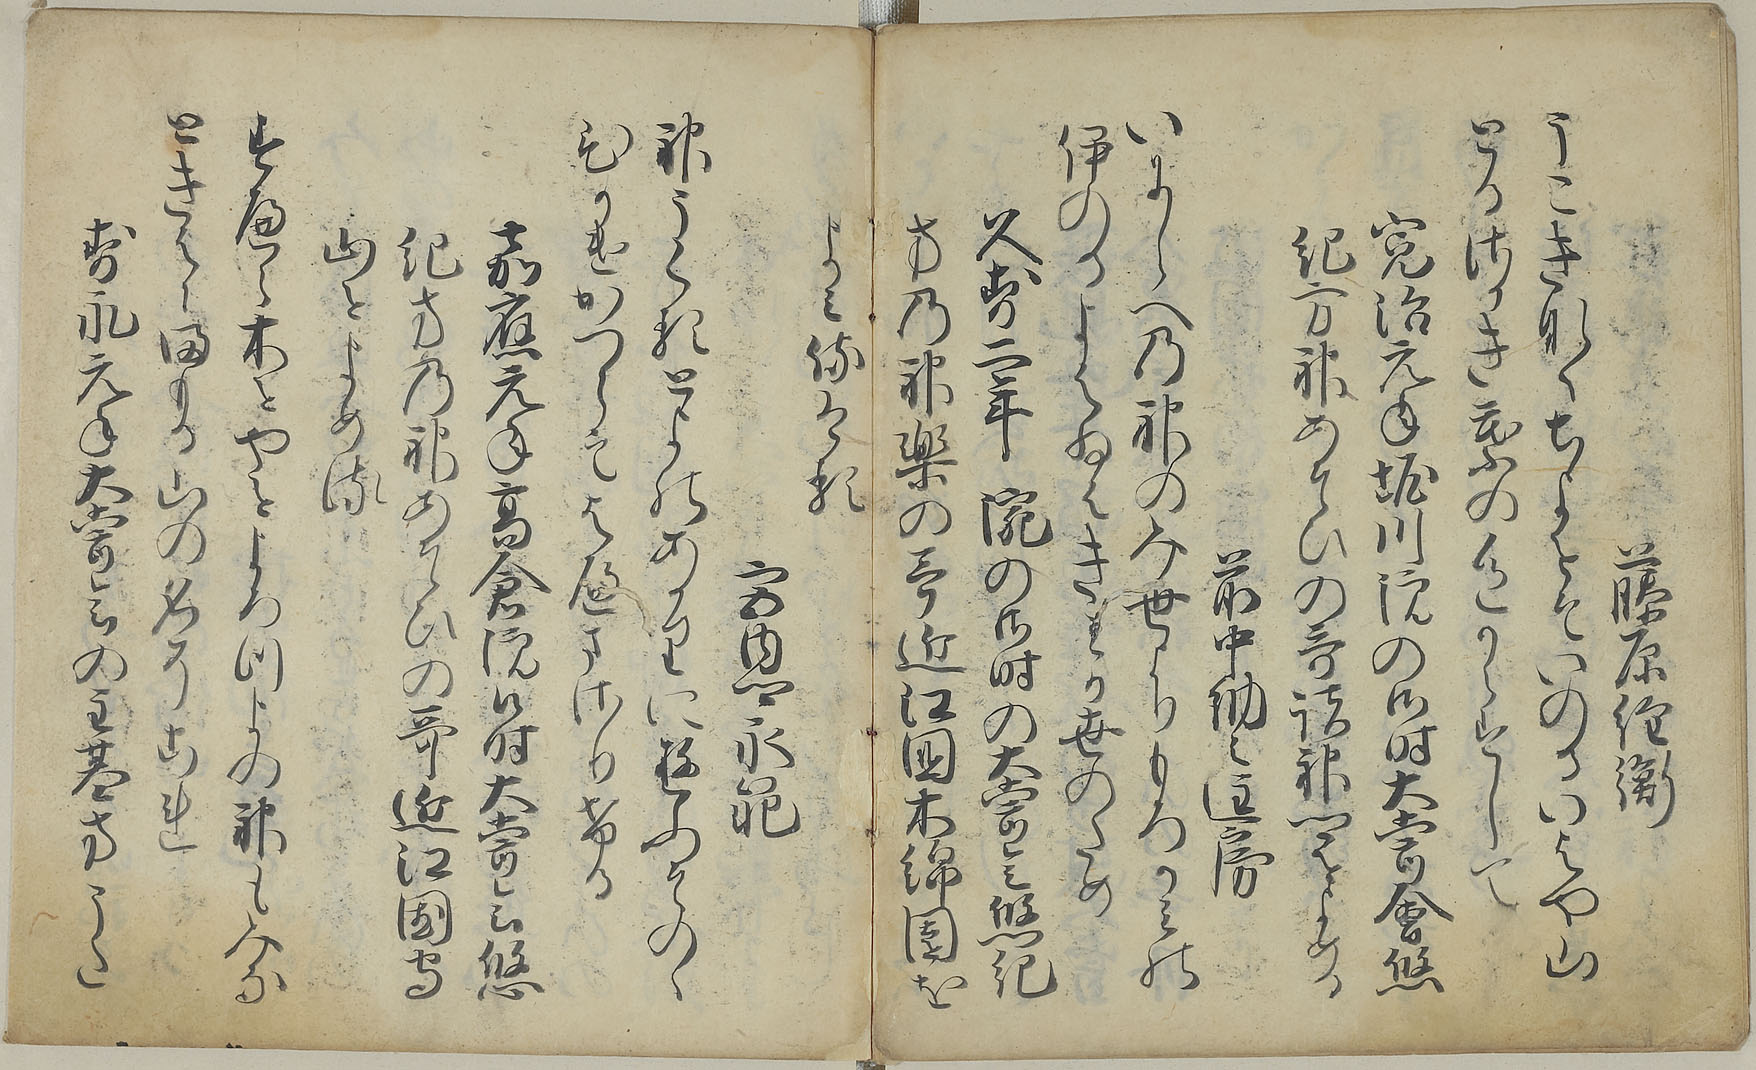 藤原経衡
うこきなくちよをそいのるいはや山
とるさかき葉の色かへすして
寛治元年堀川院の御時大嘗会悠
紀方神あそひの哥諸神郷をよめる
前中納言匡房
いにしへ乃神のみ世よりもろかみの
伊のるいはゐはきみか世のため
久寿二年院の御時の大嘗会悠紀
方乃神楽の哥近江国木綿園を
よみ侍ける
宮内卿永範
神うくるとよのあかりに遊ふそのゝ
ひかけかつらそはへまさりける
嘉應元年高倉院御時大嘗会悠
紀方乃神あそひの哥近江国守
山をよめる
すへら木をやをよろつよの神もみな
ときはにまもる山の名そこれ
寿永元年大嘗会の主基方うた